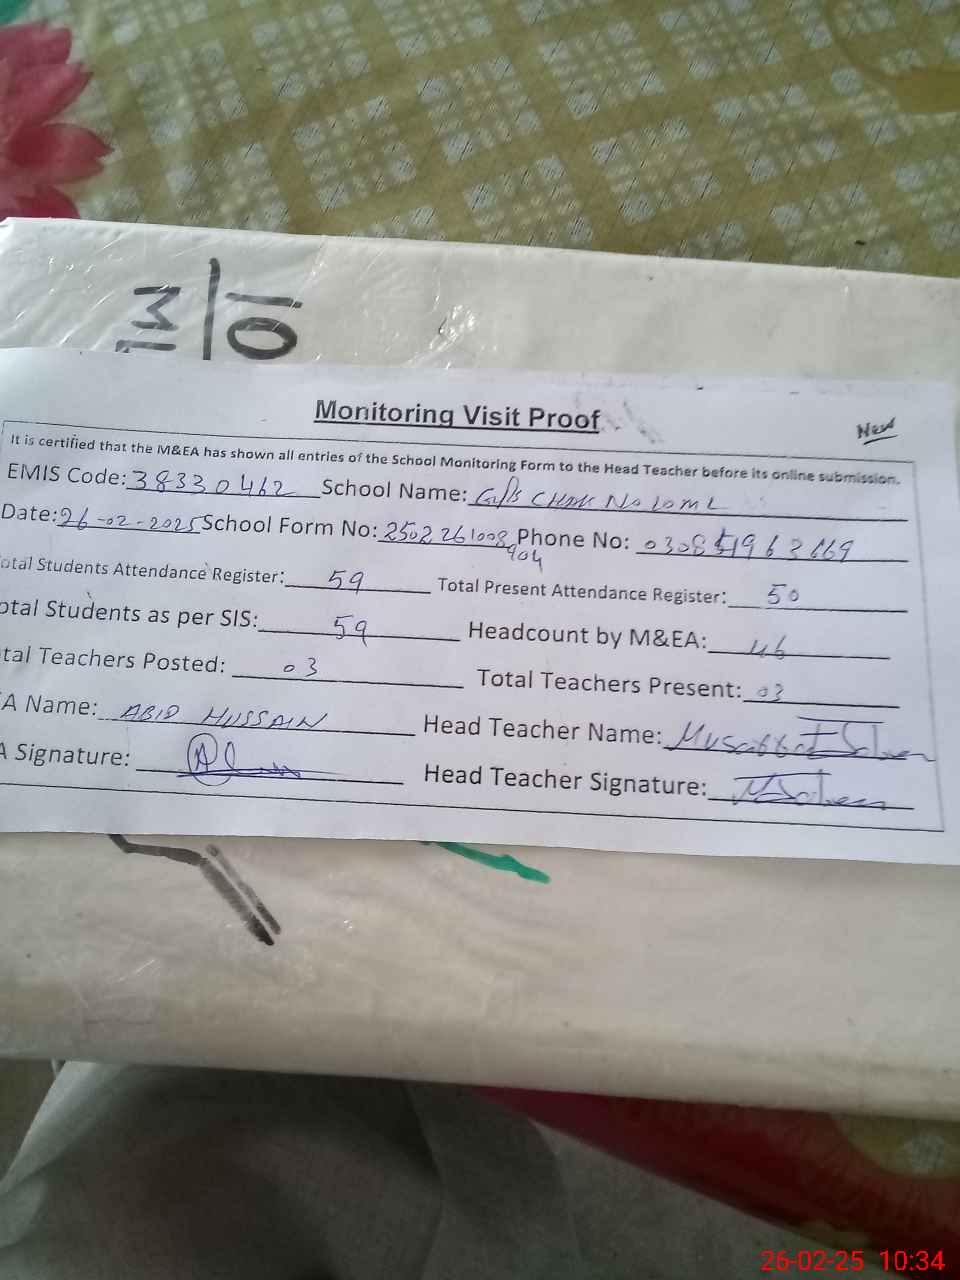 Monitoring Visit Proof
New
It is certified that the M&EA has shown all entries of the School Monitoring Form to the Head Teacher before its online submission.
EMIS Code: 38330462 School Name: G/P/S CHAK No 10 ML
Date: 26-02-2025 School Form No: 2502261008904 Phone No:
otal Students Attendance Register: 59 Total Present Attendance Register: 50
otal Students as per SIS: 59 Headcount by M&EA: 46
tal Teachers Posted: 03 Total Teachers Present: 03
A Name: ABID HUSSAIN Head Teacher Name:
A Signature: Head Teacher Signature:
26-02-25 10:34